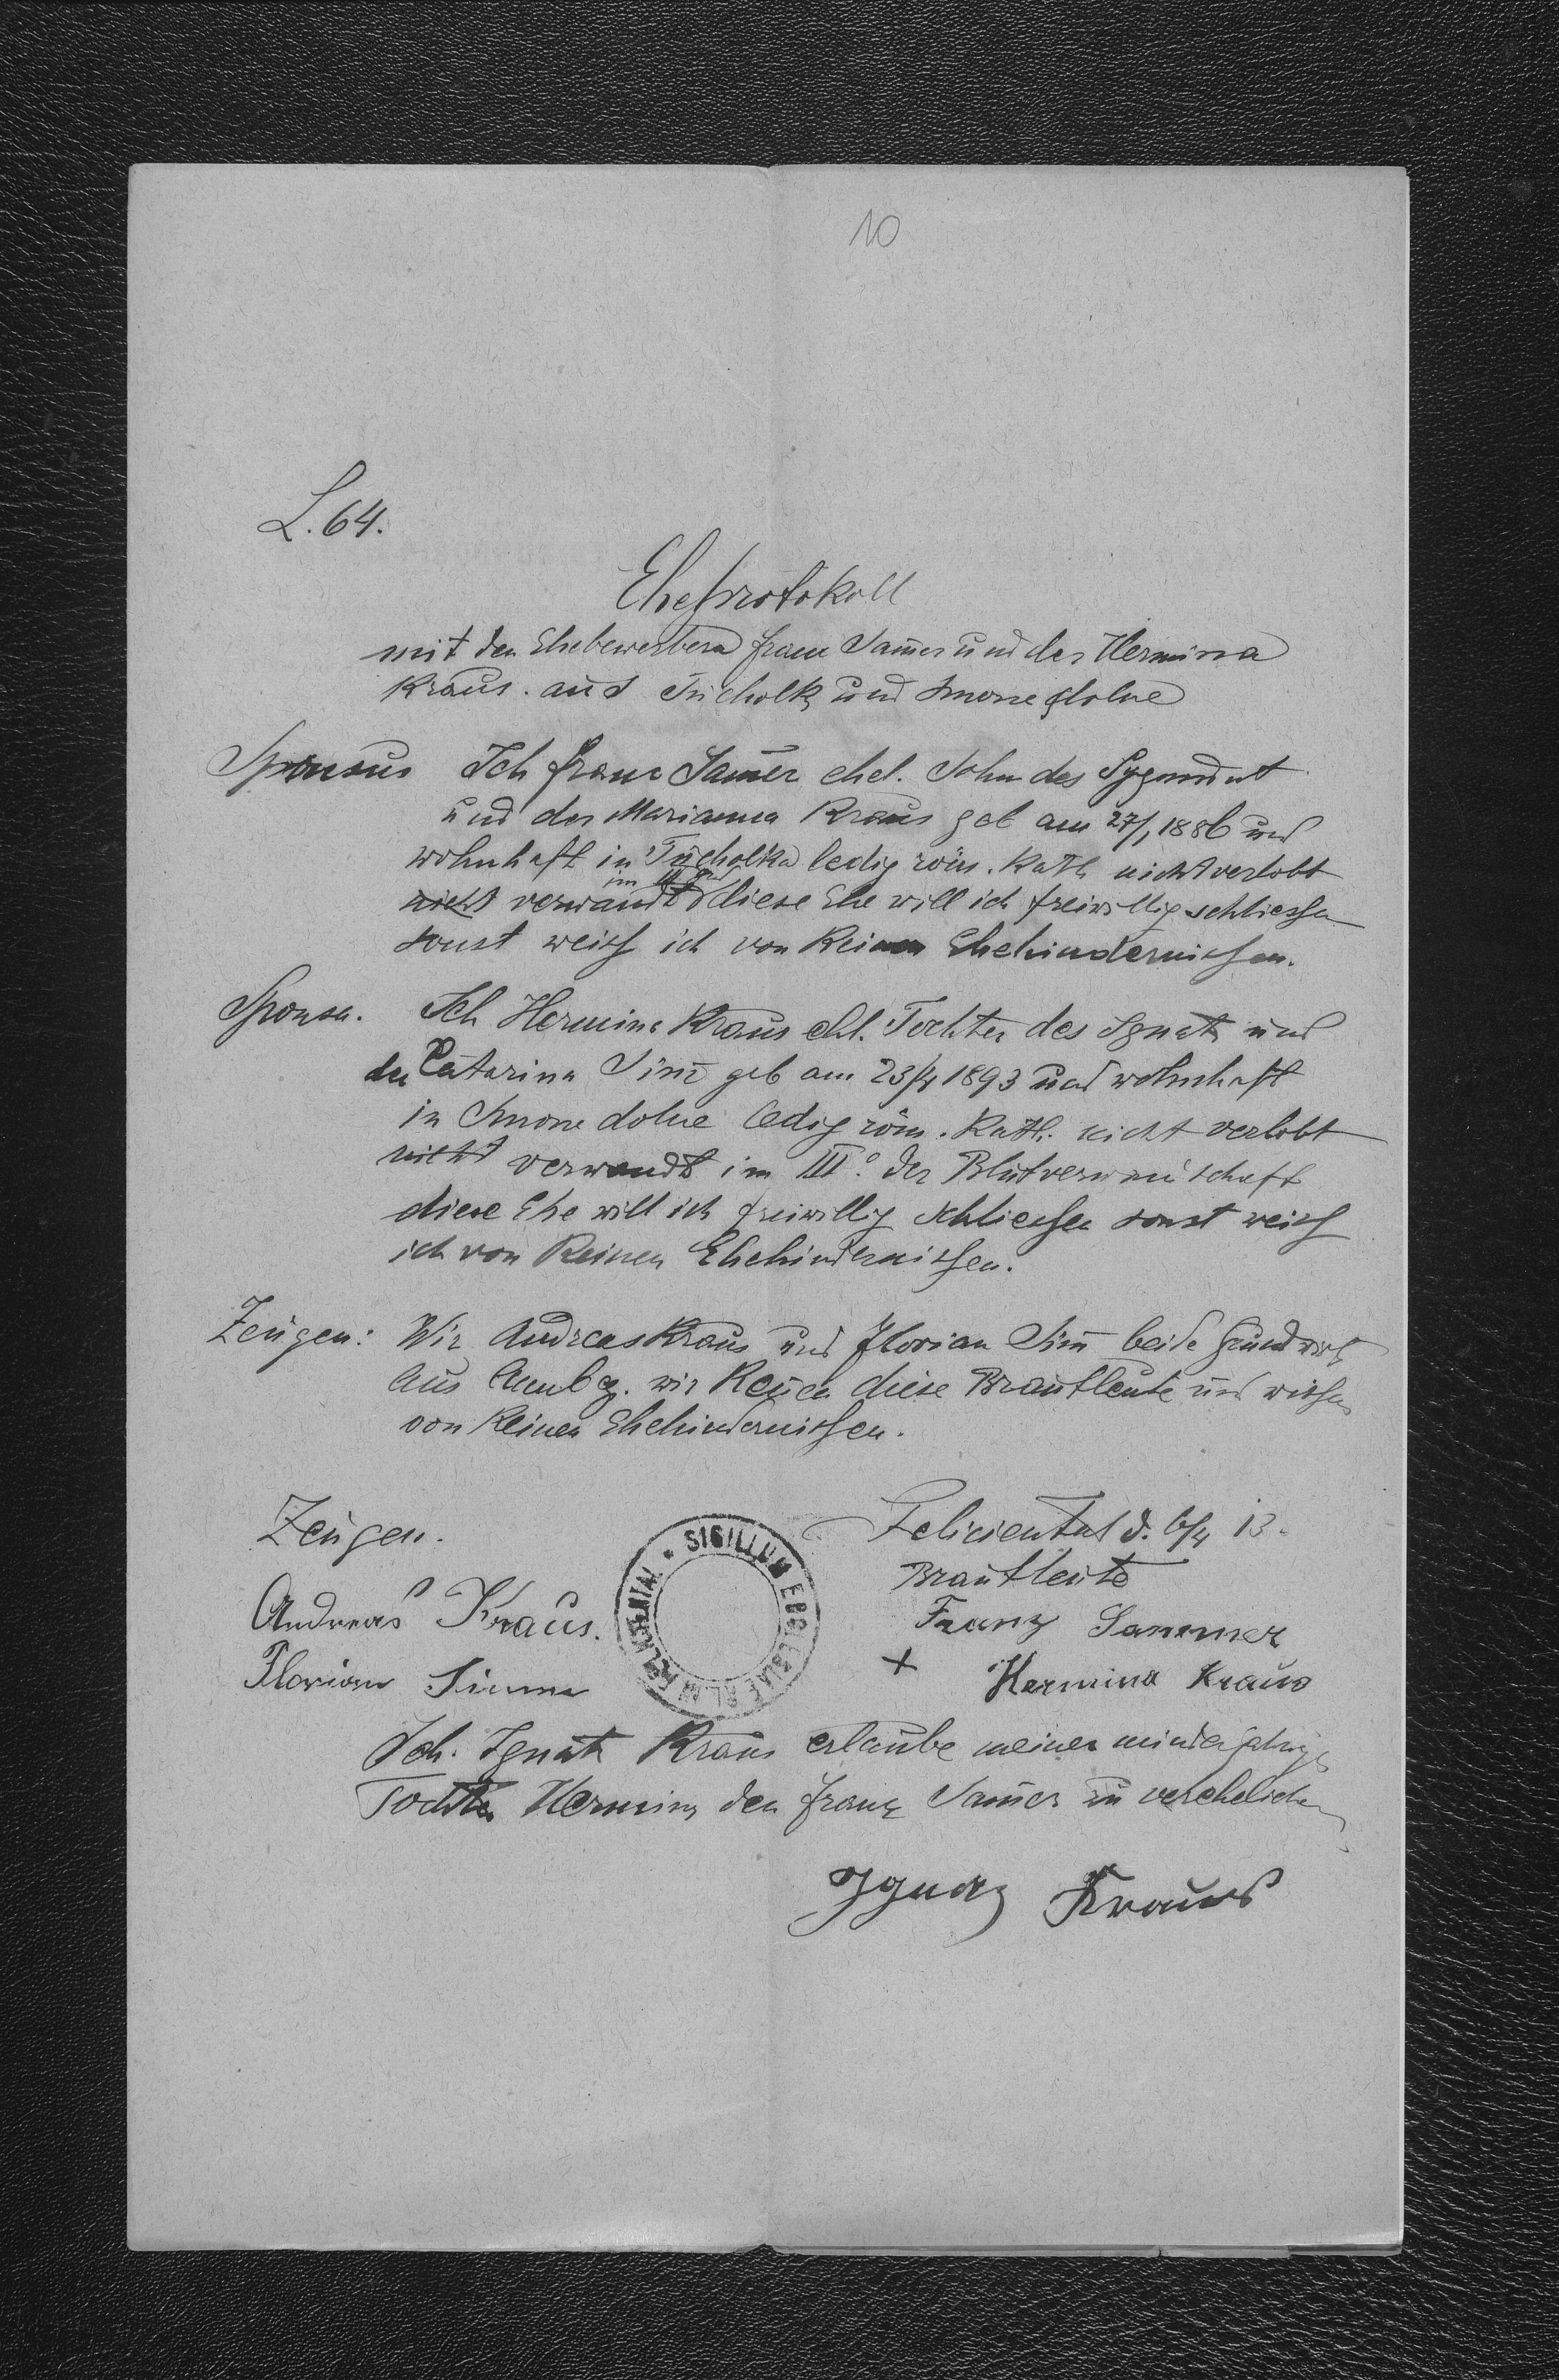 10
L. 64.
Eheprotokoll
mit den Ehebewerbern Franz Sam̄er und der Hermina
Kraus. aus Tucholka und Annone dolne
Sponsus Ich Franz Sam̄er ehel. Sohn des Sygmunt
und der Marianna Kraus geb am 27/1 1886 und
wohnhaft in Tucholka ledig röm. Kath nicht verlobt
im III Grad
nicht verwandt diese Ehe will ich freiwillig schliessen
sonst weiss ich von Keinen Ehehindernissen.
Sponsa. Ich Hermina Kraus ehl. Tochter des Ignatz und
der Catarina Sim̄ geb am 23/4 1893 und wohnhaft
in Annone dolne ledig röm. Kath. nicht verlobt
nicht verwandt im III°. der Blutverwandschaft
diese Ehe will ich freiwillig schliessen sonst weiss
ich von Keinen Ehehindernissen.
Zeugen: Wir Andreas Kraus und Florian Sim̄ beide Grundwirth
aus Annbg. wir Ken̄en diese Brautleute und wissen
von Keinen Ehehindernissen.
Zeugen.
Andreas Kraus.
Florian Simm
SIGILLUM ECCLESIAE
Felicienthal d. 6/4 13.
Brautleute
Franz Sammer
+ Hermina Kraus
Ich Ignatz Kraus erlaube meiner minderjährige
Tochter Hermina den Franz Sam̄er zu verehelichen
Ignaz Kraus